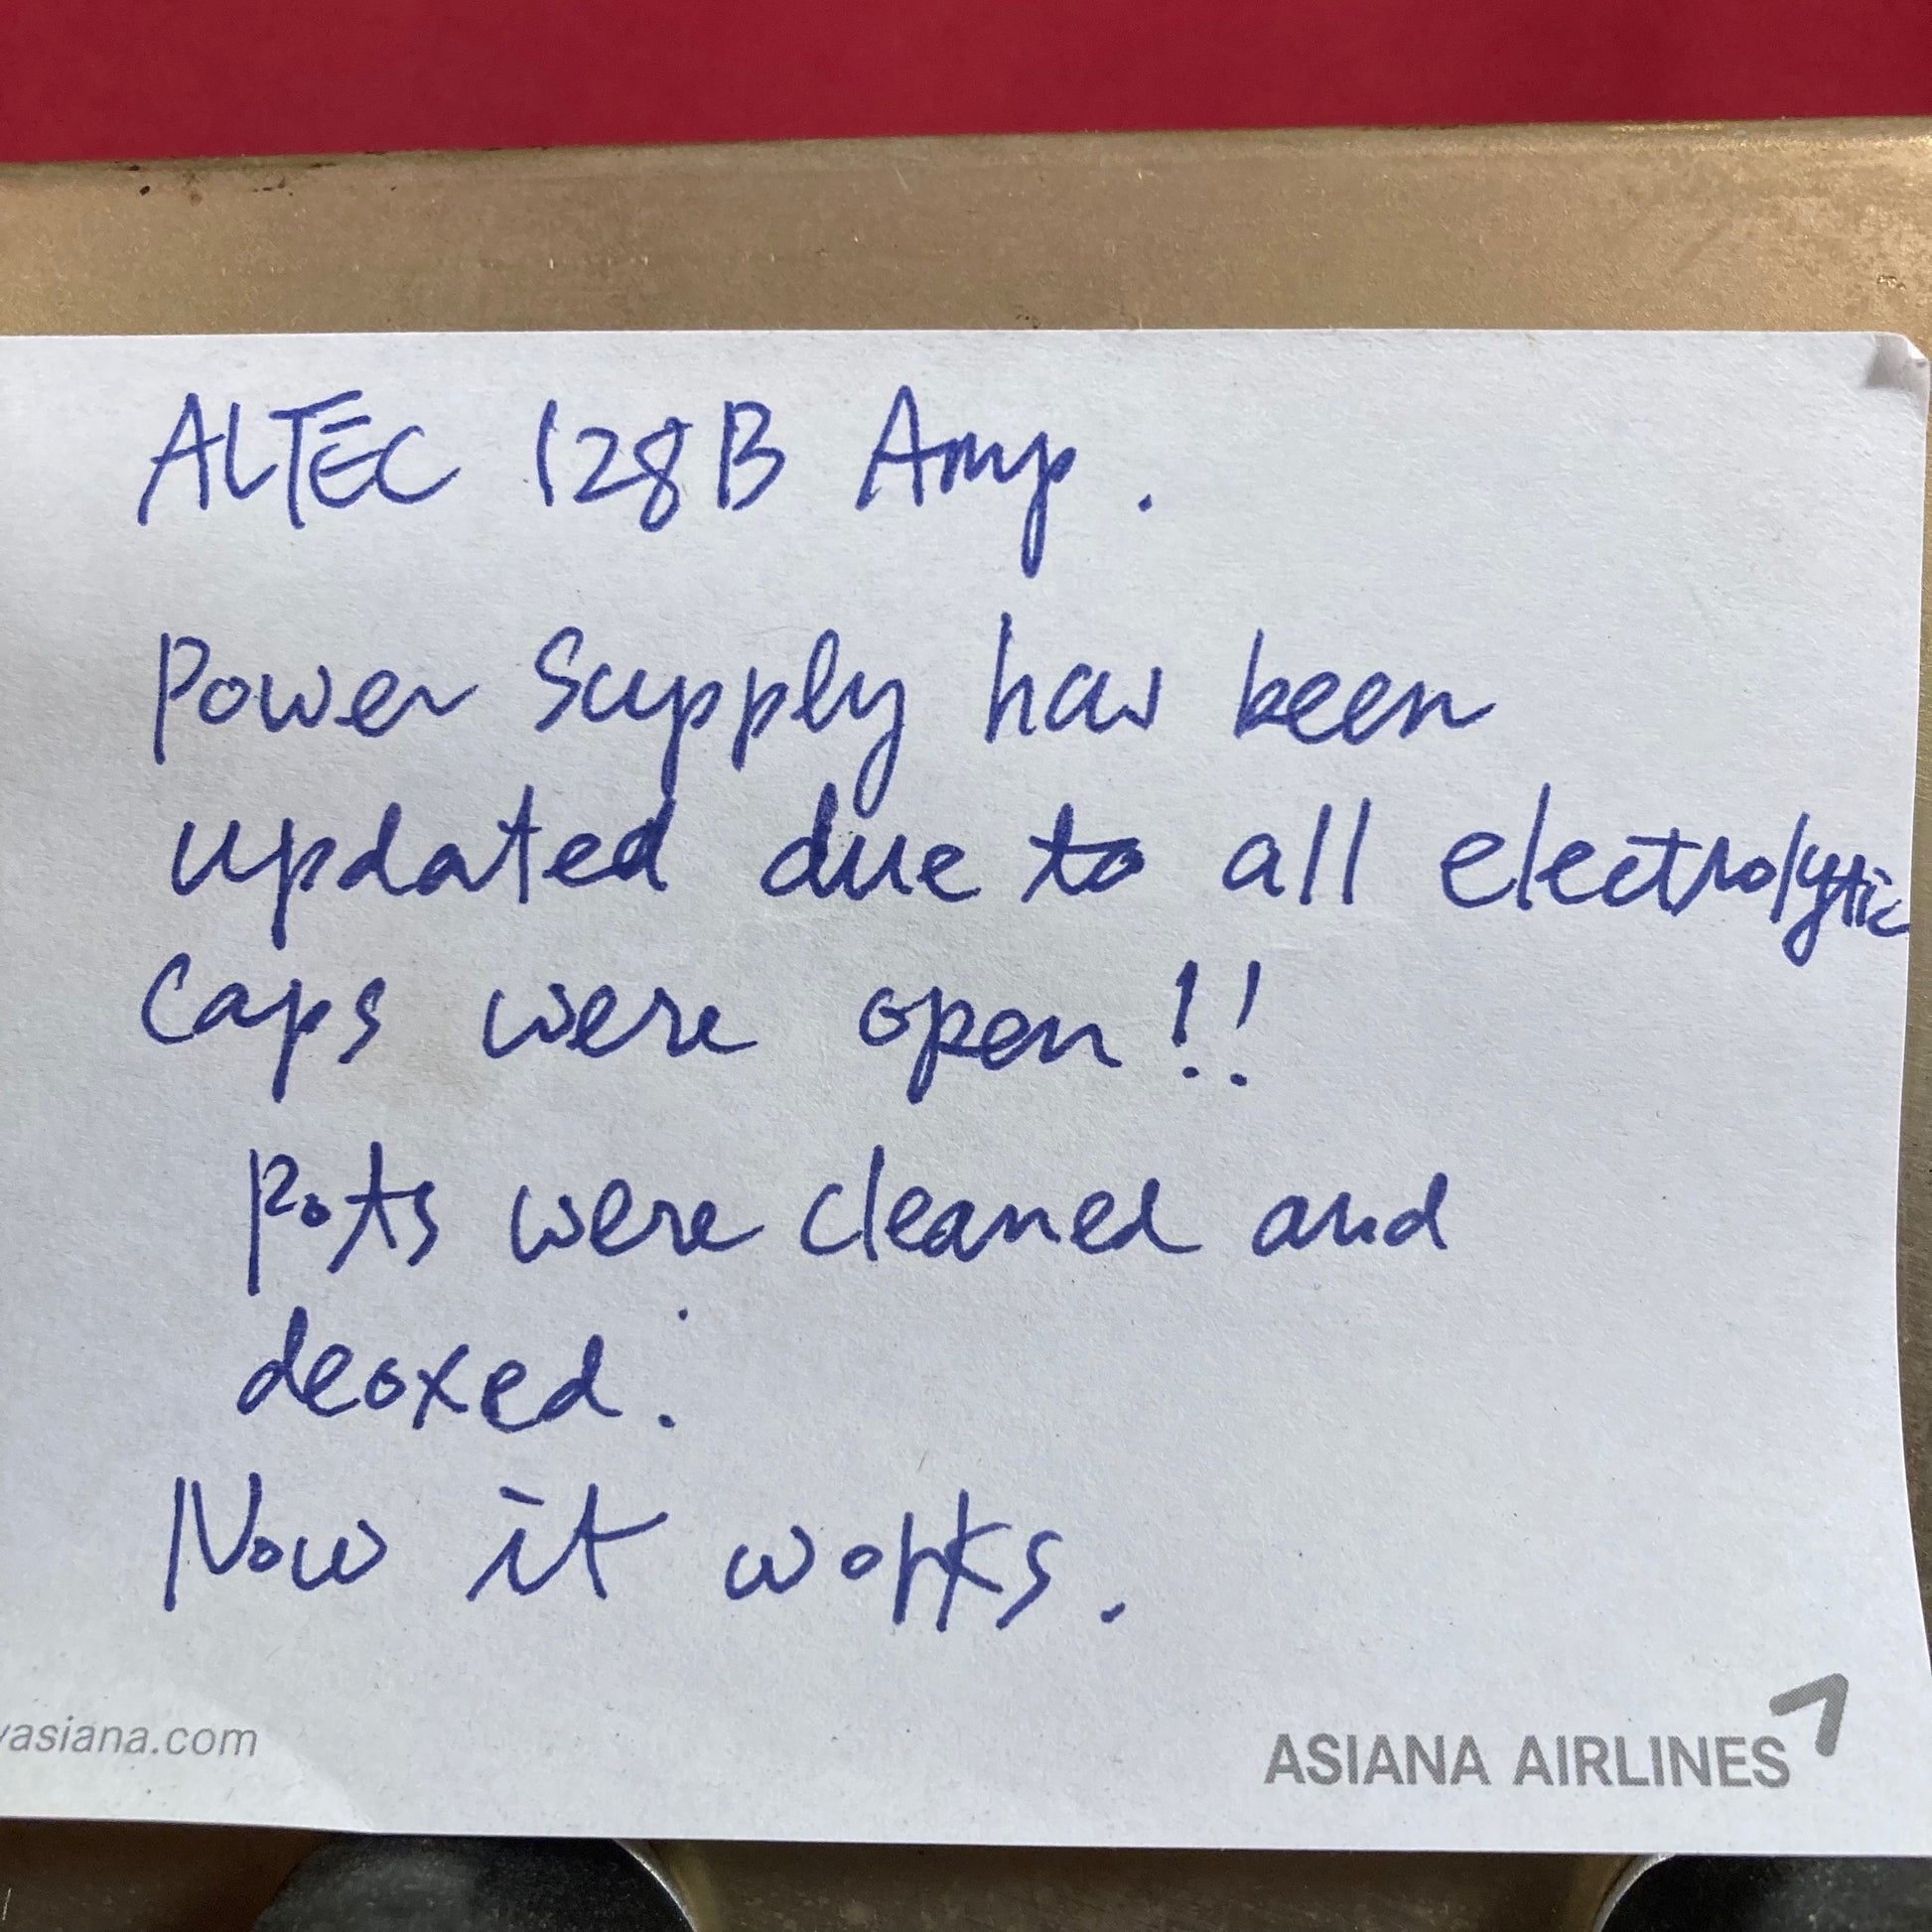 ALTEC 128B Amp.
Power Supply has been
updated due to all electrolytic
Caps were open!!
Pots were cleaned and
deoxed.
Now it works.
yasiana.com
ASIANA AIRLINES